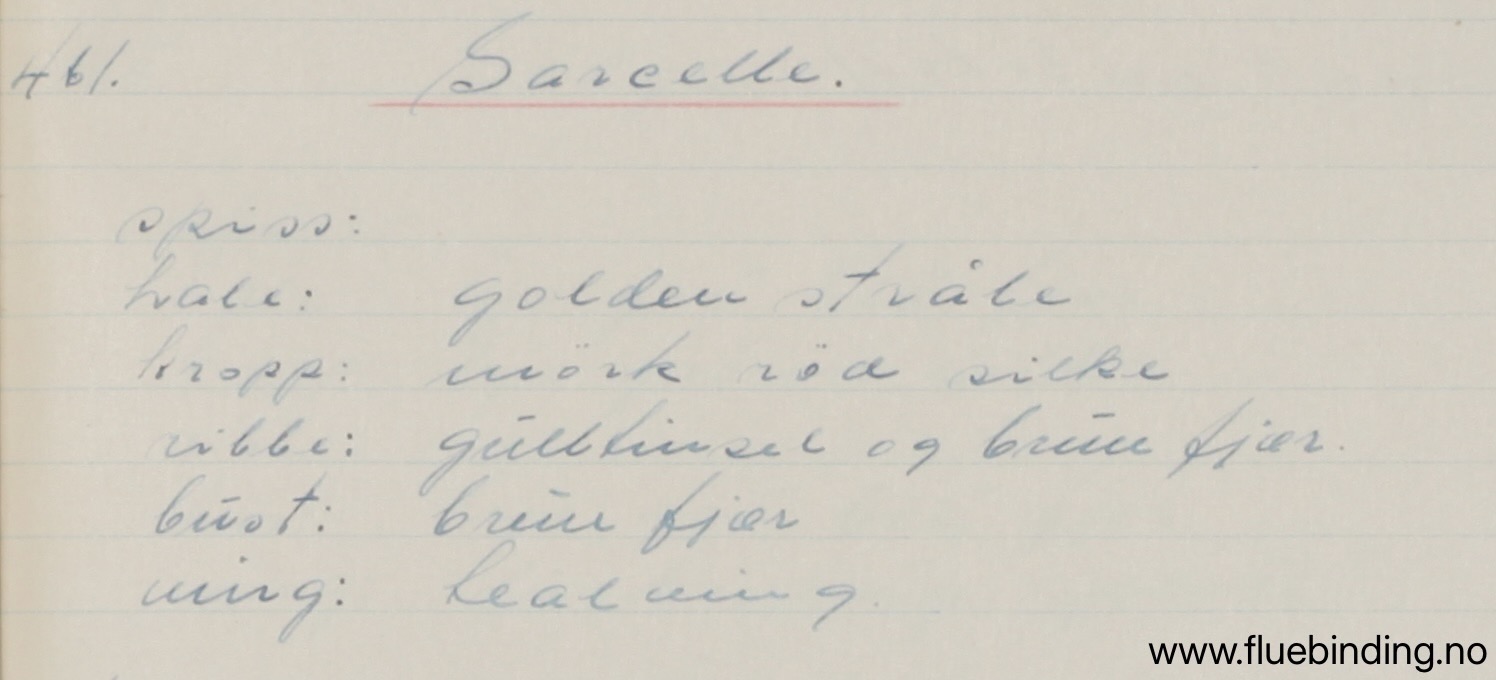 461. Sarcelle.
spiss:
hale: golden stråle
kropp: mörk röd silke
ribbe: gulltinsel og brun fjær.
bust: brun fjær
ving: tealving.
www.fluebinding.no